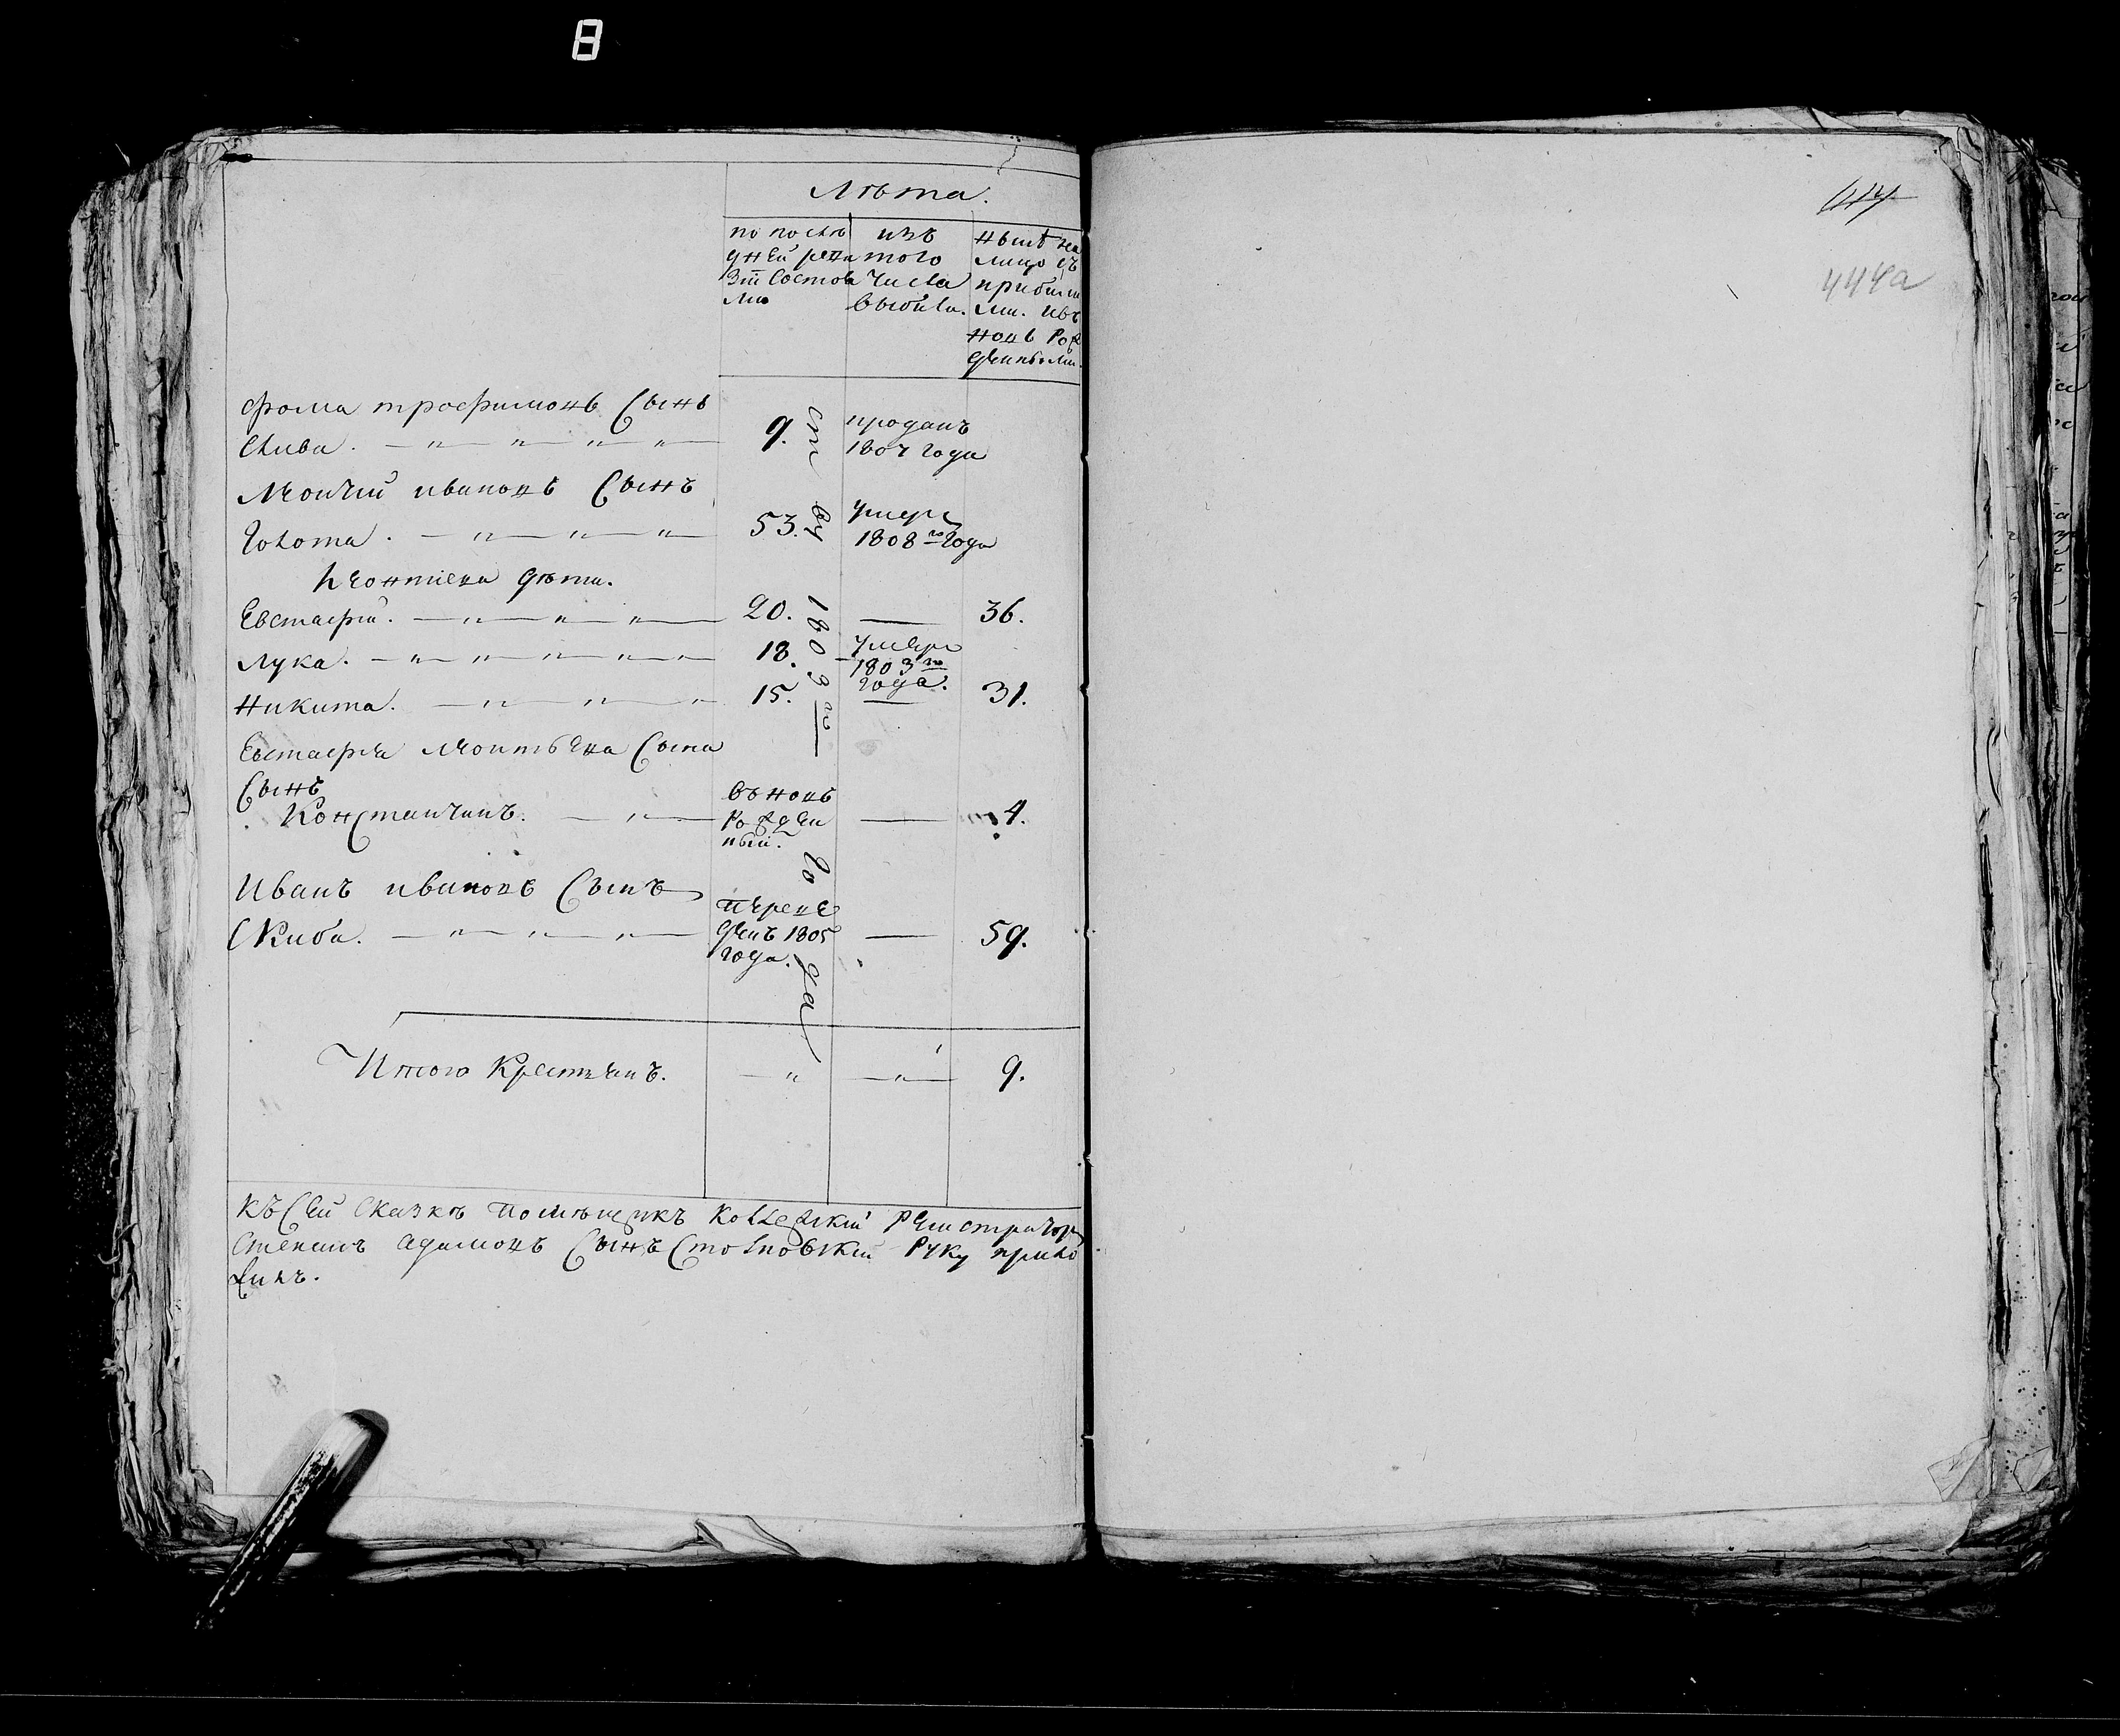 8
Лѣта.
по послѣ
дней реви
зіи состоя
ли
изъ
того
числа
выбыли.
нынѣ на
лицо съ
прибылы
ми. ивъ
новь рож
денными.
Фома трофимовъ Сынъ
Слива. 9. проданъ
1804 года
Леонтій ивановъ Сынъ
Голота. 53. умеръ
1808 го года
Леонтіева дѣти.
Евстафій. 20. — 36.
Лука. 18. умеръ
1803 го
года.
Никита. 15. — 31.
Евстафія леонтьева Сына
Сынъ
Константинъ. въ новь
рожден
ный. — 4.
Иванъ ивановъ Сынъ
Скиба. переве
денъ 1805
года. — 59.
1803 го
года
Итого Крестьянъ. — " — " — 9.
Къ Сей Сказкѣ помѣщикъ Коллежскій Регистраторъ
Степанъ адамовъ Сынъ Столповскій Руку прило
жилъ.
444а